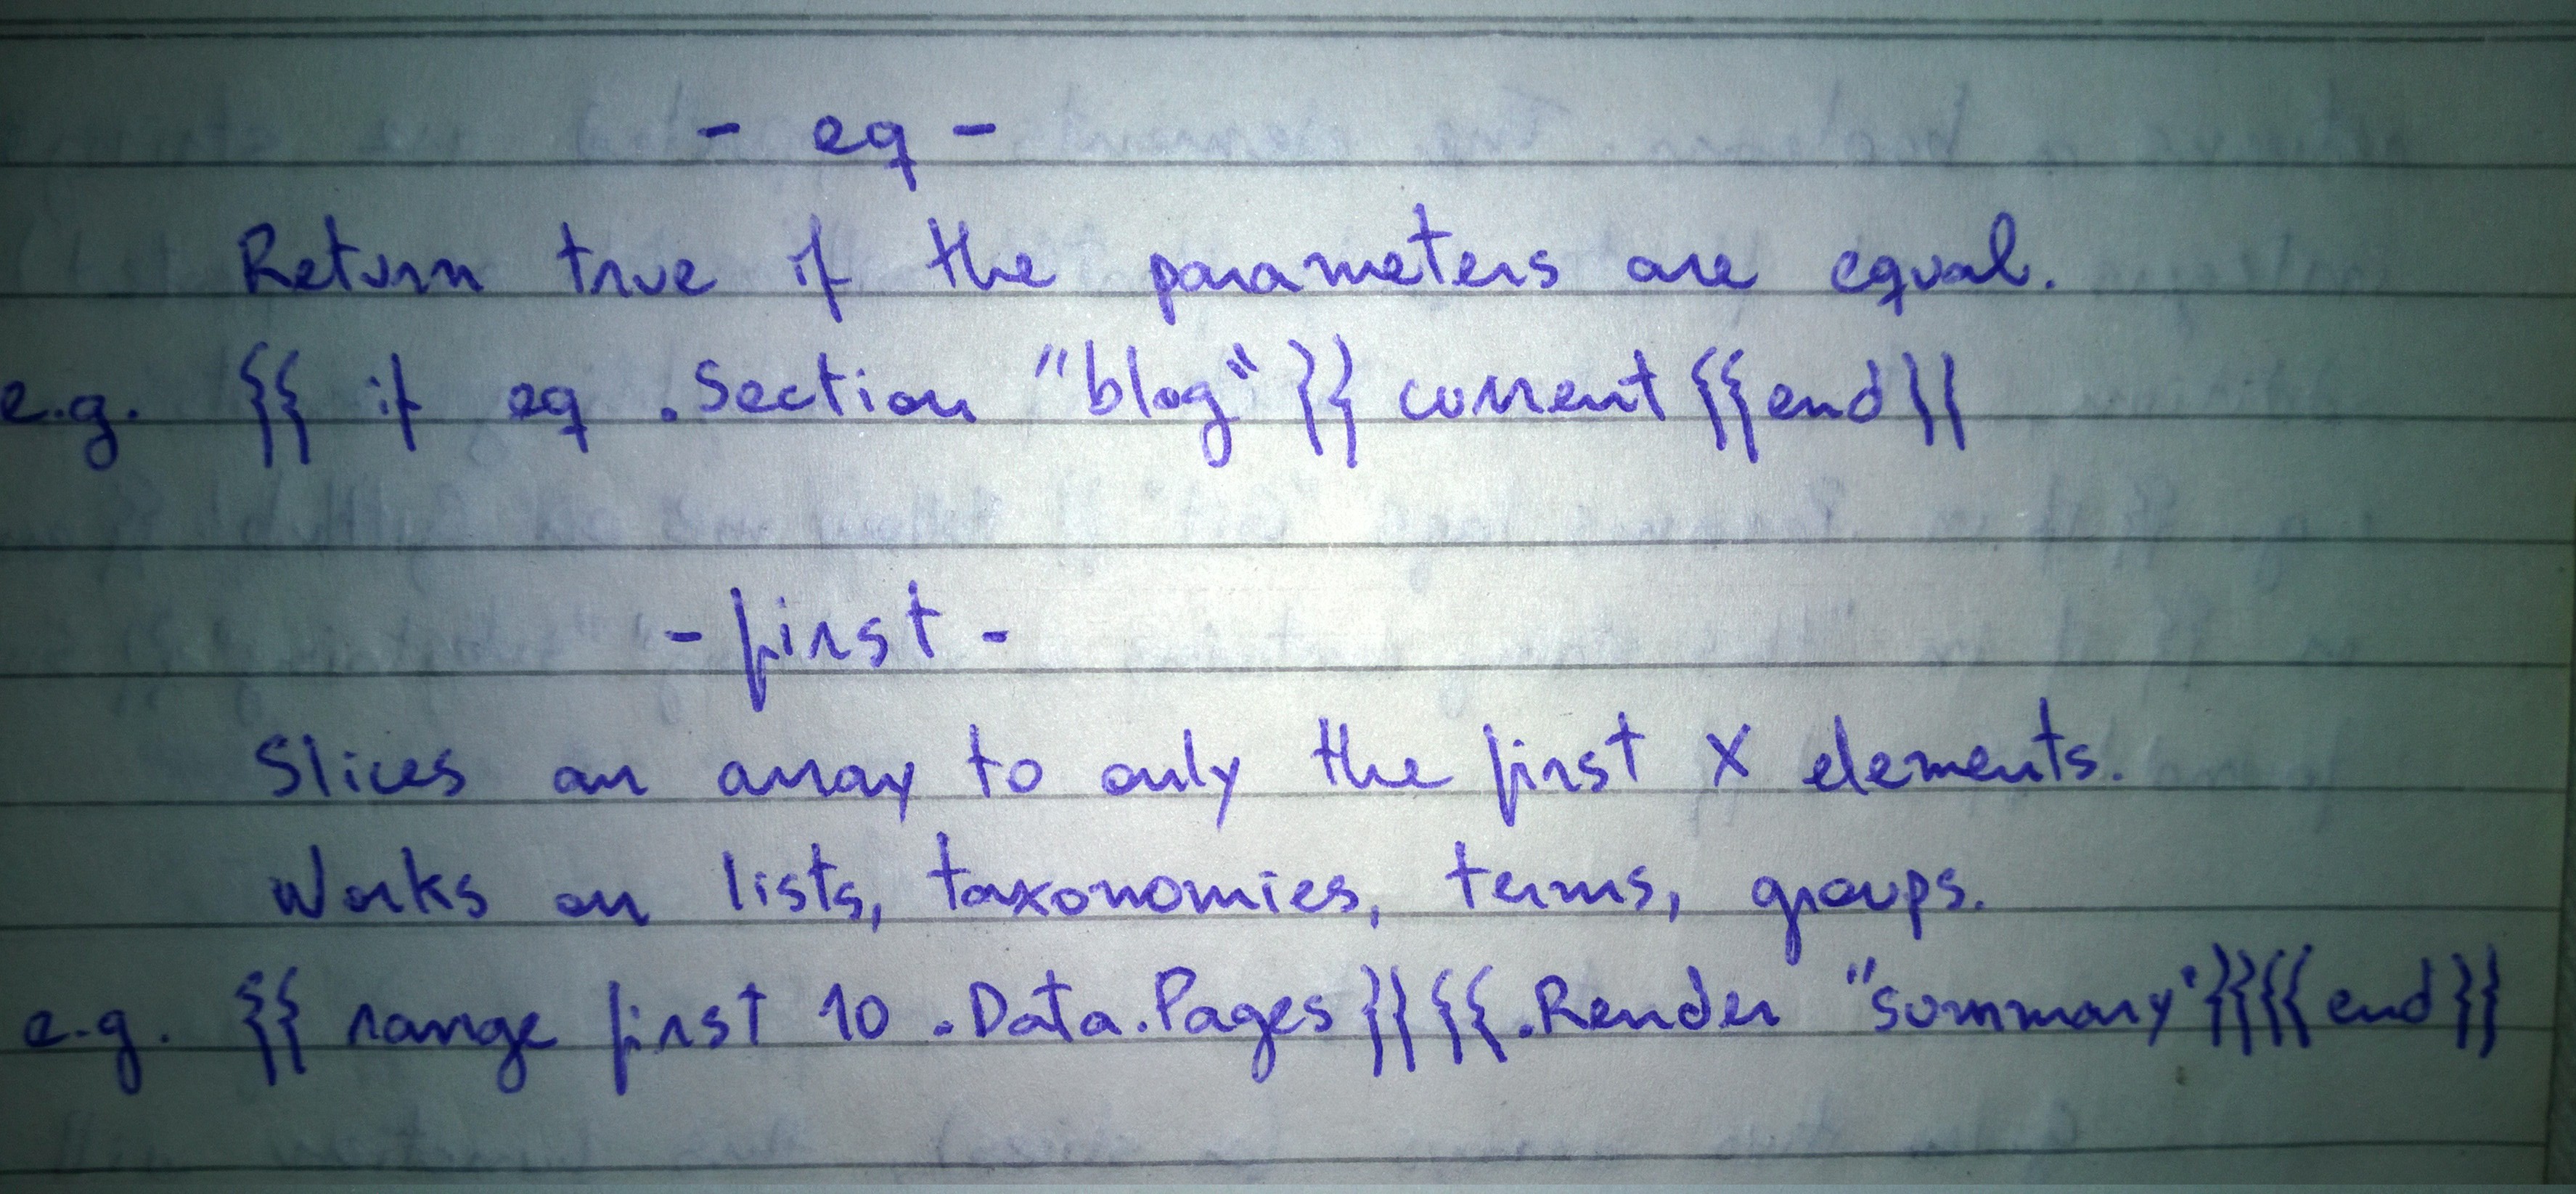 - eq -
Return true if the parameters are equal.
e.g. {{ if eq .Section "blog" }} current {{ end }}
- first -
Slices an array to only the first X elements.
Works on lists, taxonomies, terms, groups.
e.g. {{ range first 10 .Data.Pages }} {{ .Render "summary" }} {{ end }}